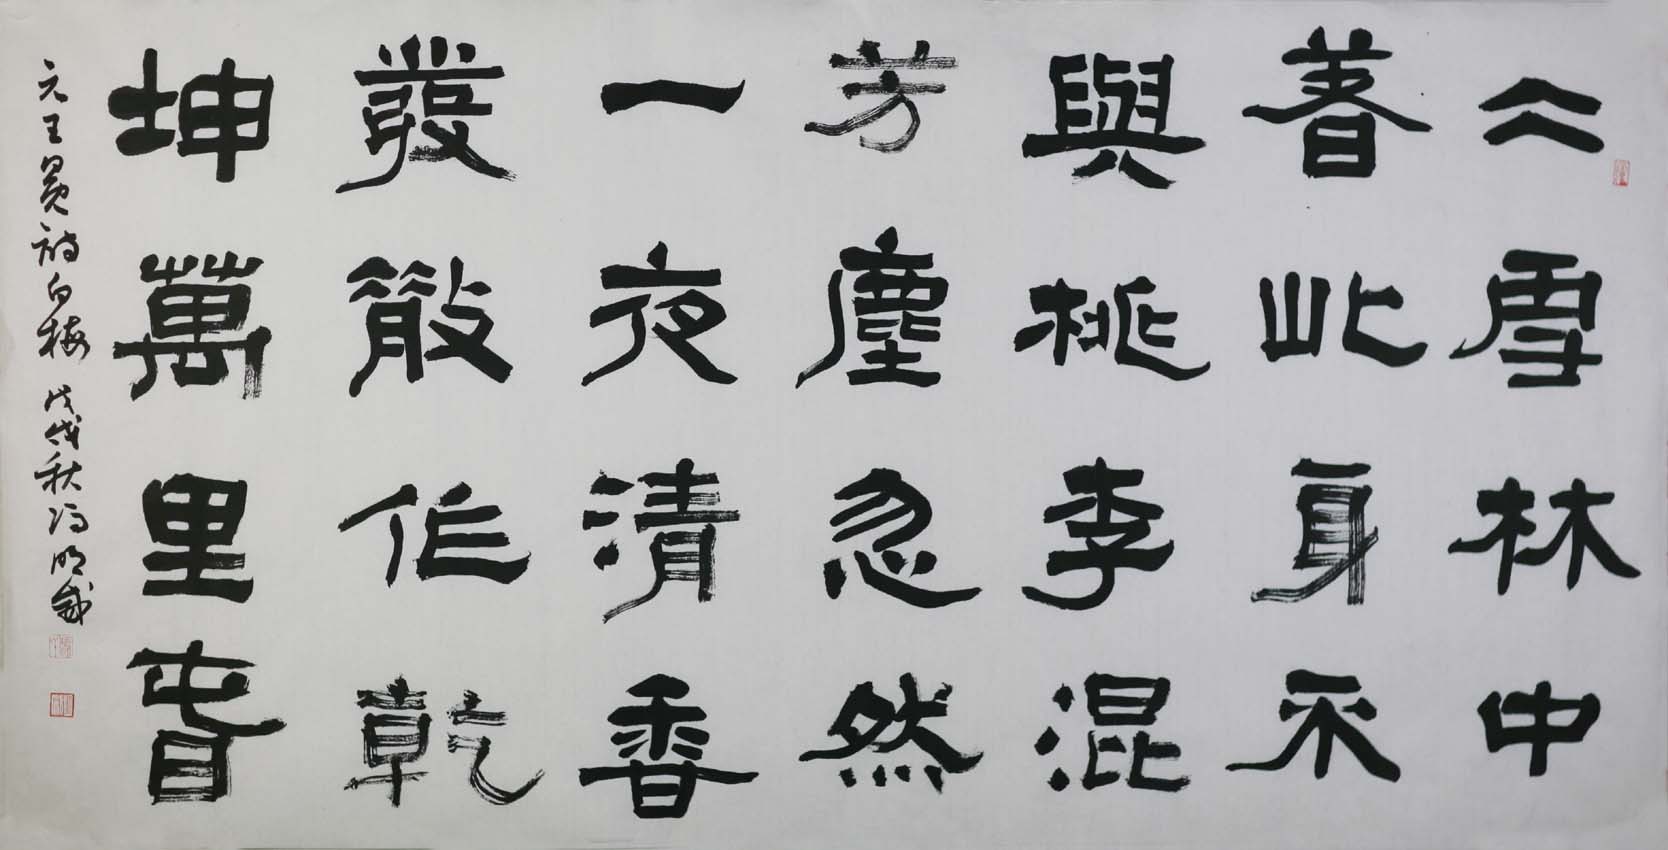 仌雪林中
著此身不
與桃李混
芳塵忽然
一夜清香
發散作乾
坤萬里旾
元王冕詩白梅 戊戌秋馮明